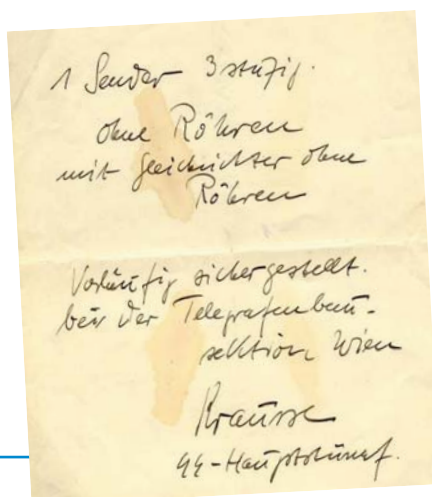 1 Sender 3stufig.
ohne Röhren
mit Gleichrichter ohne
Röhren
Vorläufig sichergestellt.
bei der Telegrafenbau-
sektion Wien
Krausse
SS-Hauptstürmf.